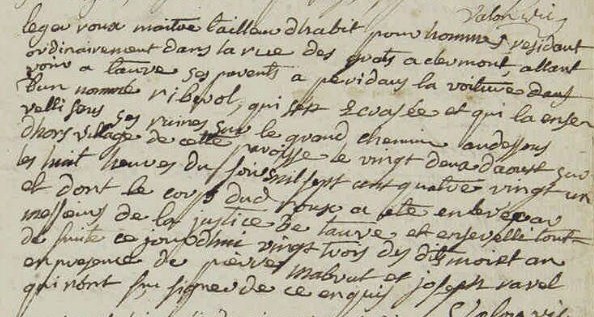 valon vic
leger roux maitre tailleur dhabit pour hommes residant
ordinairement dans la rue des gras a clermont, allant
voir a tauve ses parents a peri dans la voiture dun
nommé ribeyrol, qui sest ecrasée et qui la ense
velli sous ses ruines sur le grand chemin audessous
dhors village de cette paroisse le vingt deux daoust sur
les huit heures du soir mil sept cent quatre vingt un
et dont le corps dud roux a eté enlevé par
messieurs de la justice de tauve et ensevelli tout
de suite ce jourdhui vingt trois des dits mois et an
en presence de pierre mabrut et joseph ravel
qui nont su signer de ce enquis
valon vic